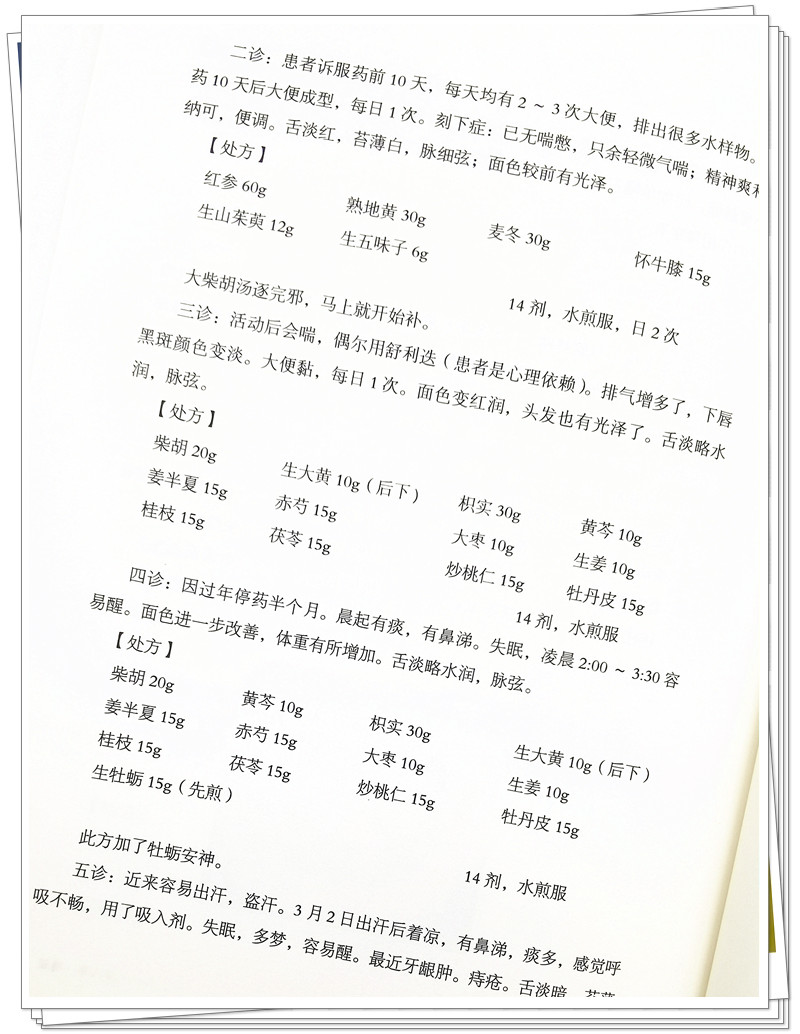 二诊：患者诉服药前 10 天，每天均有 2 ～ 3 次大便，排出很多水样物。
药 10 天后大便成型，每日 1 次。刻下症：已无喘憋，只余轻微气喘；精神爽利
纳可，便调。舌淡红，苔薄白，脉细弦；面色较前有光泽。
【处方】
红参 60g 熟地黄 30g 麦冬 30g 怀牛膝 15g
生山茱萸 12g 生五味子 6g
14 剂，水煎服，日 2 次
大柴胡汤逐完邪，马上就开始补。
三诊：活动后会喘，偶尔用舒利迭（患者是心理依赖）。排气增多了，下唇
黑斑颜色变淡。大便黏，每日 1 次。面色变红润，头发也有光泽了。舌淡略水
润，脉弦。
【处方】
柴胡 20g 生大黄 10g（后下） 枳实 30g 黄芩 10g
姜半夏 15g 赤芍 15g 大枣 10g 生姜 10g
桂枝 15g 茯苓 15g 炒桃仁 15g 牡丹皮 15g
14 剂，水煎服
四诊：因过年停药半个月。晨起有痰，有鼻涕。失眠，凌晨 2:00 ～ 3:30 容
易醒。面色进一步改善，体重有所增加。舌淡略水润，脉弦。
【处方】
柴胡 20g 黄芩 10g 枳实 30g 生大黄 10g（后下）
姜半夏 15g 赤芍 15g 大枣 10g 生姜 10g
桂枝 15g 茯苓 15g 炒桃仁 15g 牡丹皮 15g
生牡蛎 15g（先煎）
14 剂，水煎服
此方加了牡蛎安神。
五诊：近来容易出汗，盗汗。3 月 2 日出汗后着凉，有鼻涕，痰多，感觉呼
吸不畅，用了吸入剂。失眠，多梦，容易醒。最近牙龈肿。痔疮。舌淡暗，苔薄